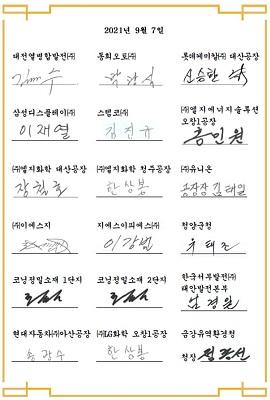 2021년 9월 7일
대전열병합발전㈜ 동희오토㈜ 롯데케미칼㈜ 대산공장
신승환
삼성디스플레이㈜ 스템코㈜ ㈜엘지에너지솔루션 오창1공장
이재열 김진규 홍민원
㈜엘지화학 대산공장 ㈜엘지화학 청주공장 ㈜유니온
한상봉 공장장 김태일
㈜이에스지 지에스이피에스㈜ 청양군청
이강범
코닝정밀소재 1단지 코닝정밀소재 2단지 한국서부발전㈜ 태안발전본부
현대자동차㈜아산공장 ㈜LG화학 오창1공장 금강유역환경청
송광수 한상봉 청장